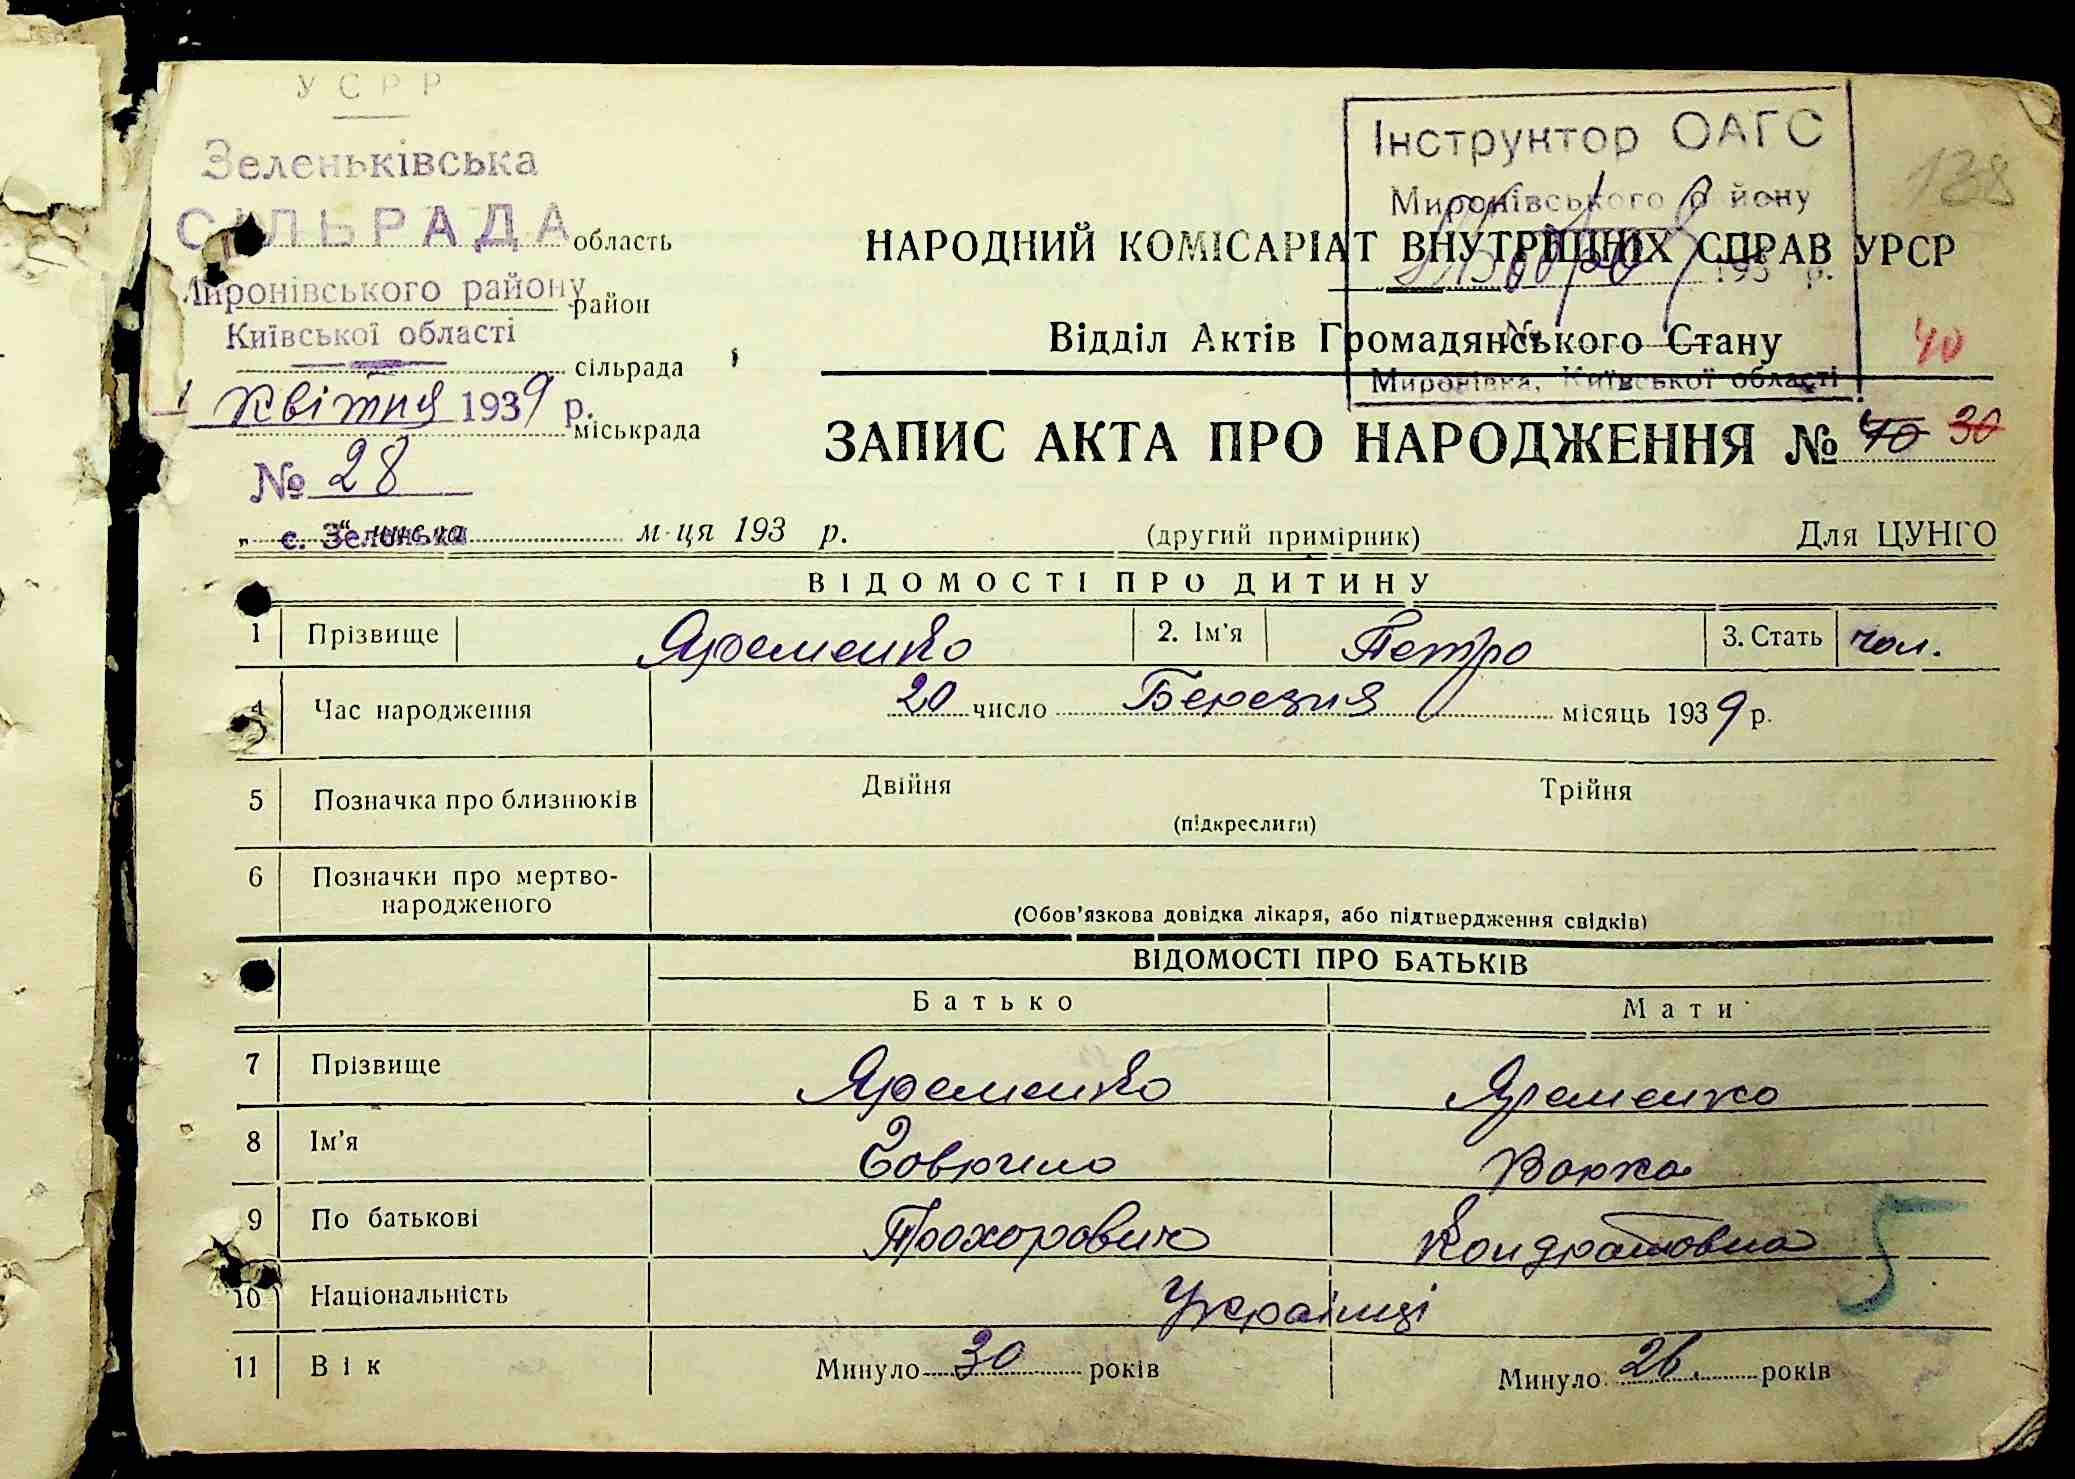 УСРР
Зеленьківська
СІЛЬРАДА область
Миронівського району район
Київської області
сільрада
1 Квітня 1939 р.
міськрада
№ 28
с. Зеленька
„ “ числа м-ця 193 р.
Інструктор ОАГС
Миронівського району
193 р.
№
Миронівка, Київської області
138
НАРОДНИЙ КОМІСАРІАТ ВНУТРІШНІХ СПРАВ УРСР
Відділ Актів Громадянського Стану
40
ЗАПИС АКТА ПРО НАРОДЖЕННЯ № 40 30
(другий примірник) Для ЦУНГО
ВІДОМОСТІ ПРО ДИТИНУ
1 Прізвище Яременко 2. Ім'я Петро 3. Стать чол.
4 Час народження 20 число Березня місяць 1939 р.
5 Позначка про близнюків Двійня Трійня
(підкреслити)
6 Позначки про мертво-
народженого
(Обов'язкова довідка лікаря, або підтвердження свідків)
ВІДОМОСТІ ПРО БАТЬКІВ
Батько Мати
7 Прізвище Яременко Яременко
8 Ім'я Гаврило Варка
9 По батькові Прохорович Кондратовна
5
10 Національність Українці
11 Вік Минуло 30 років Минуло 26 років